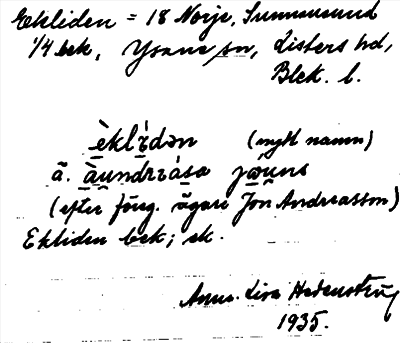 Ekliden = 18 Norje, Sunnansund
1/4 bek, Ysane sn, Listers hd,
Blek. l.
èklɪ́dən (nytt namn)
ä. àundrɪása jɷuns
(efter föreg. ägare Jön Andreasson)
Ekliden bek; ek.
Anna-Lisa Hedenström
1935.